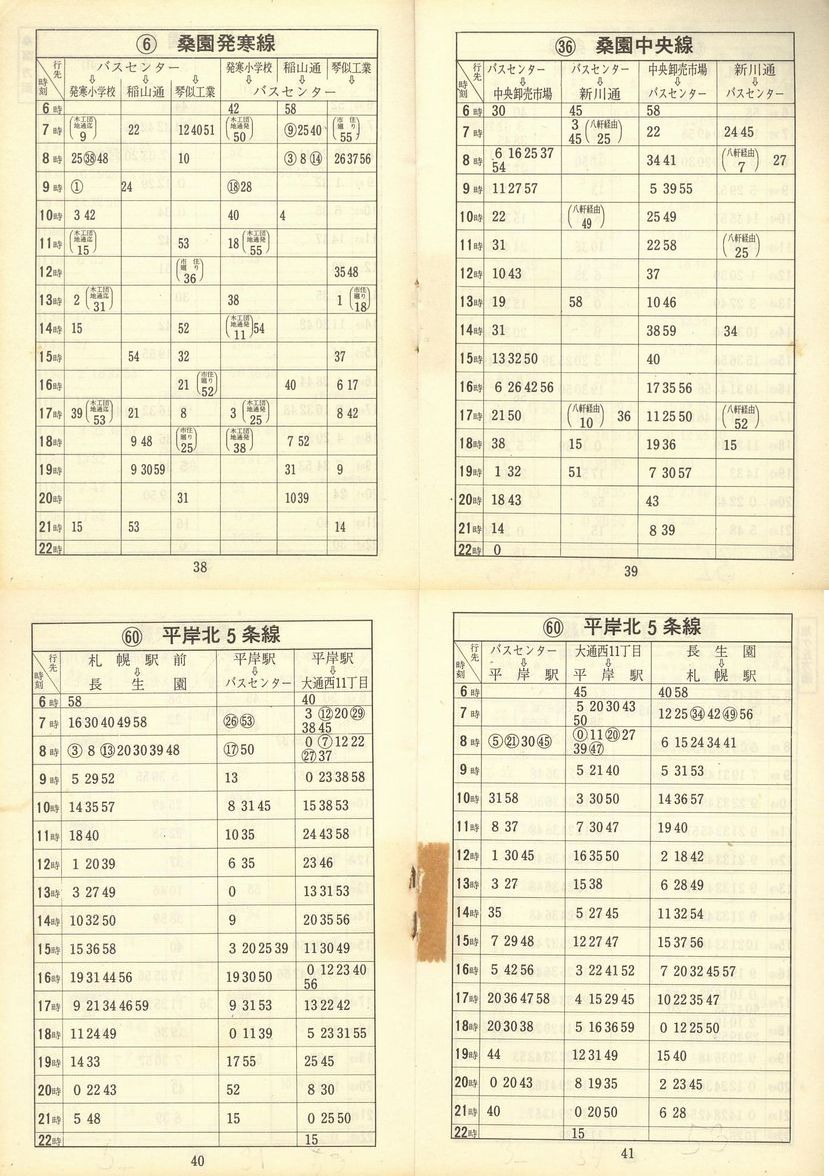 ⑥ 桑園発寒線
行先 時刻 バスセンター⇩発寒小学校 稲山通 琴似工業 発寒小学校 稲山通 琴似工業⇩バスセンター
6時 42 58
7時 (木工団地通迄9) 22 12 40 51 (木工団地通発50) ⑨ 25 40 (市住廻り55)
8時 25 ㊳ 48 10 ③ 8 ⑭ 26 37 56
9時 ① 24 ⑱ 28
10時 3 42 40 4
11時 (木工団地通迄15) 53 18 (木工団地通発55)
12時 (市住廻り36) 35 48
13時 2 (木工団地通迄31) 38 1 (市住廻り18)
14時 15 52 (木工団地通発11) 54
15時 54 32 37
16時 21 (市住廻り52) 40 6 17
17時 39 (木工団地通迄53) 21 8 3 (木工団地通発25) 8 42
18時 9 48 (市住廻り25) (木工団地通発38) 7 52
19時 9 30 59 31 9
20時 31 10 39
21時 15 53 14
22時
38
㊱ 桑園中央線
行先 時刻 バスセンター⇩中央卸売市場 バスセンター⇩新川通 中央卸売市場⇩バスセンター 新川通⇩バスセンター
6時 30 45 58
7時 3 45 (八軒経由25) 22 24 45
8時 6 16 25 37 54 34 41 (八軒経由7) 27
9時 11 27 57 5 39 55
10時 22 (八軒経由49) 25 49
11時 31 22 58 (八軒経由25)
12時 10 43 37
13時 19 58 10 46
14時 31 38 59 34
15時 13 32 50 40
16時 6 26 42 56 17 35 56
17時 21 50 (八軒経由10) 36 11 25 50 (八軒経由52)
18時 38 15 19 36 15
19時 1 32 51 7 30 57
20時 18 43 43
21時 14 8 39
22時 0
39
㊿ 平岸北5条線
行先 時刻 札幌駅前⇩長生園 平岸駅⇩バスセンター 平岸駅⇩大通西11丁目
6時 58 40
7時 16 30 40 49 58 ㉖ 53 3 ⑫ 20 ㉙ 38 45
8時 ③ 8 ⑬ 20 30 39 48 ⑰ 50 0 ⑦ 12 22 ㉗ 37
9時 5 29 52 13 0 23 38 58
10時 14 35 57 8 31 45 15 38 53
11時 18 40 10 35 24 43 58
12時 1 20 39 6 35 23 46
13時 3 27 49 0 13 31 53
14時 10 32 50 9 20 35 56
15時 15 36 58 3 20 25 39 11 30 49
16時 19 31 44 56 19 30 50 0 12 23 40 56
17時 9 21 34 46 59 9 31 53 13 22 42
18時 11 24 49 0 11 39 5 23 31 55
19時 14 33 17 55 25 45
20時 0 22 43 52 8 30
21時 5 48 15 0 25 50
22時 15
40
60 平岸北5条線
行先 時刻 バスセンター⇩平岸駅 大通西11丁目⇩平岸駅 長生園⇩札幌駅
6時 45 40 58
7時 5 20 30 43 50 12 25 ㉞ 42 ㊾ 56
8時 ⑤ ㉑ 30 ㊺ ⓪ 11 ⑳ 27 39 ㊼ 6 15 24 34 41
9時 5 21 40 5 31 53
10時 31 58 3 30 50 14 36 57
11時 8 37 7 30 47 19 40
12時 1 30 45 16 35 50 2 18 42
13時 3 27 15 38 6 28 49
14時 35 5 27 45 11 32 54
15時 7 29 48 12 27 47 15 37 56
16時 5 42 56 3 22 41 52 7 20 32 45 57
17時 20 36 47 58 4 15 29 45 10 22 35 47
18時 20 30 38 5 16 36 59 0 12 25 50
19時 44 12 31 49 15 40
20時 0 20 43 8 19 35 2 23 45
21時 40 0 20 50 6 28
22時 15
41